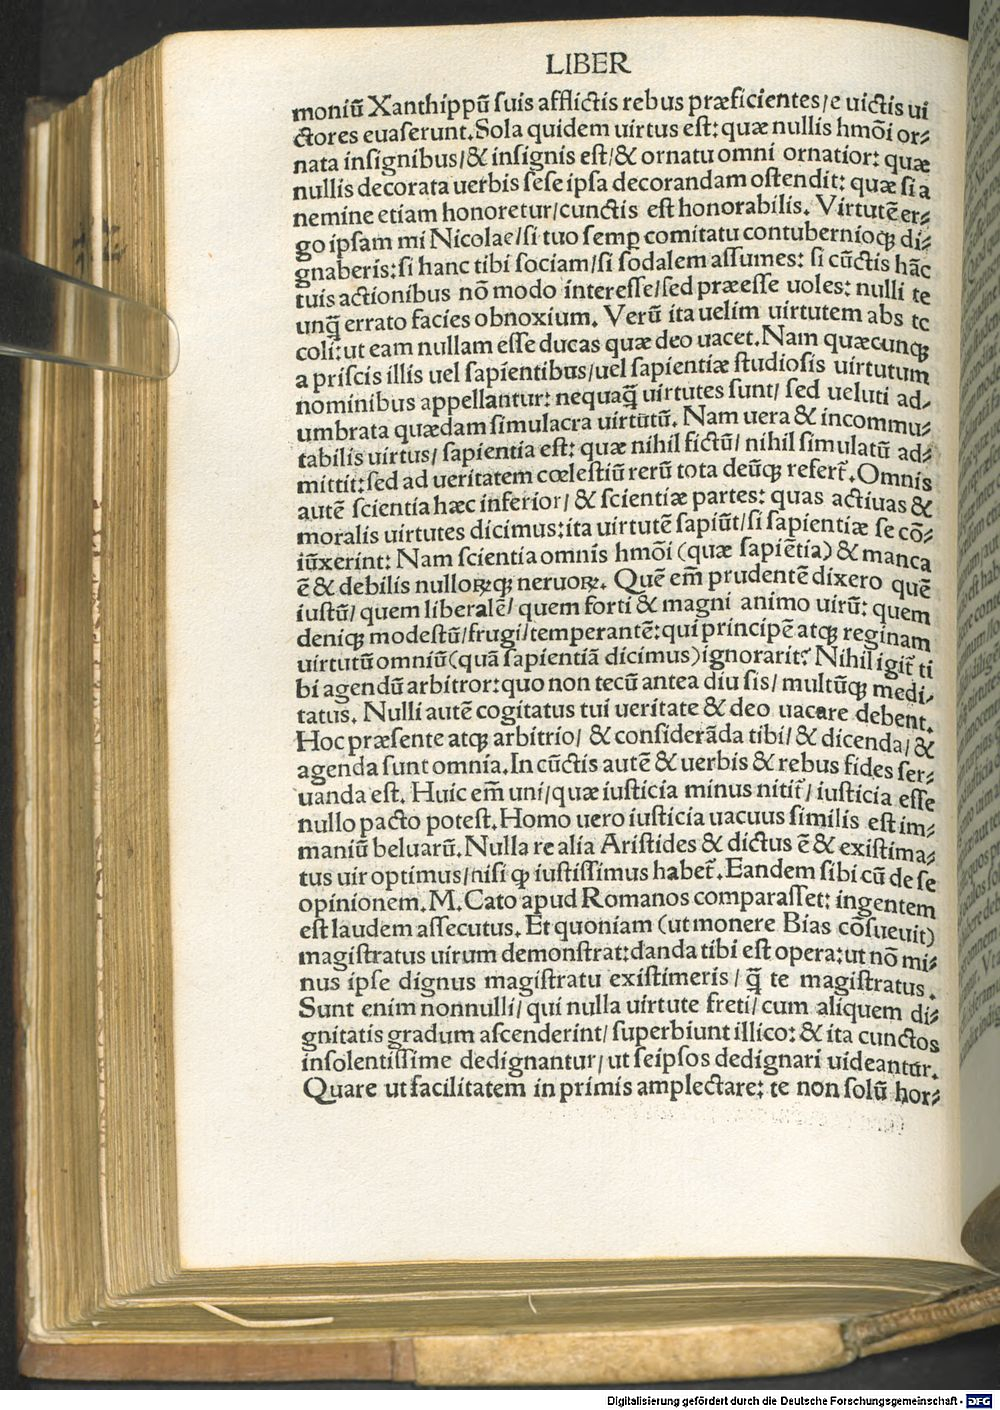 LIBER
moniū Xanthippū ſuis afflictis rebus præficientes/e uictis ui
ctores euaſerunt. Sola quidem uirtus eſt: quæ nullis hmōi or⸗
nata inſignibus/& inſignis eſt/& ornatu omni ornatior: quæ
nullis decorata uerbis ſeſe ipſa decorandam oſtendit: quæ ſi a
nemine etiam honoretur/cunctis eſt honorabilis. Virtutē er⸗
go ipſam mi Nicolae/ſi tuo ſemꝑ comitatu contubernioqꝫ di⸗
gnaberis: ſi hanc tibi ſociam/ſi ſodalem aſſumes: ſi cūctis hāc
tuis actionibus nō modo intereſſe/ſed præeſſe uoles: nulli te
unq̄ errato facies obnoxium. Verū ita uelim uirtutem abs te
coli: ut eam nullam eſſe ducas quæ deo uacet. Nam quæcunqꝫ
a priſcis illis uel ſapientibus/uel ſapientiæ ſtudioſis uirtutum
nominibus appellantur: nequaq̄ uirtutes ſunt/ ſed ueluti ad⸗
umbrata quædam ſimulacra uirtutū. Nam uera & incommu⸗
tabilis uirtus/ ſapientia eſt: quæ nihil fictū/ nihil ſimulatū ad⸗
mittit: ſed ad ueritatem cœleſtiū rerū tota deūqꝫ refert᷑. Omnis
autē ſcientia hæc inferior/ & ſcientiæ partes: quas actiuas &
moralis uirtutes dicimus: ita uirtutē ſapiūt/ſi ſapientiæ ſe cō⸗
iūxerint: Nam ſcientia omnis hmōi (quæ ſapiētia) & manca
ē & debilis nulloꝝqꝫ neruoꝝ. Quē em̄ prudentē dixero quē
iuſtū/ quem liberalē/ quem forti & magni animo uirū: quem
deniqꝫ modeſtū/frugi/temperantē: qui principē atqꝫ reginam
uirtutū omniū (quā ſapientiā dicimus) ignorarit? Nihil igit᷑ ti
bi agendū arbitror: quo non tecū antea diu ſis/ multūqꝫ medi⸗
tatus. Nulli autē cogitatus tui ueritate & deo uacare debent.
Hoc præſente atqꝫ arbitrio/ & conſiderāda tibi/ & dicenda/ &
agenda ſunt omnia. In cūctis autē & uerbis & rebus fides ſer⸗
uanda eſt. Huic em̄ uni/quæ iuſticia minus nitit᷑/ iuſticia eſſe
nullo pacto poteſt. Homo uero iuſticia uacuus ſimilis eſt im⸗
maniū beluarū. Nulla re alia Ariſtides & dictus ē & exiſtima⸗
tus uir optimus/niſi ꝙ iuſtiſſimus habet᷑. Eandem ſibi cū de ſe
opinionem. M. Cato apud Romanos comparaſſet: ingentem
eſt laudem aſſecutus. Et quoniam (ut monere Bias cōſueuit)
magiſtratus uirum demonſtrat: danda tibi eſt opera: ut nō mi⸗
nus ipſe dignus magiſtratu exiſtimeris/ q̄ te magiſtratus.
Sunt enim nonnulli/ qui nulla uirtute freti/ cum aliquem di⸗
gnitatis gradum aſcenderint/ ſuperbiunt illico: & ita cunctos
inſolentiſſime dedignantur/ ut ſeipſos dedignari uideantur.
Quare ut facilitatem in primis amplectare: te non ſolū hor⸗
Digitalisierung gefördert durch die Deutsche Forschungsgemeinschaft - DFG